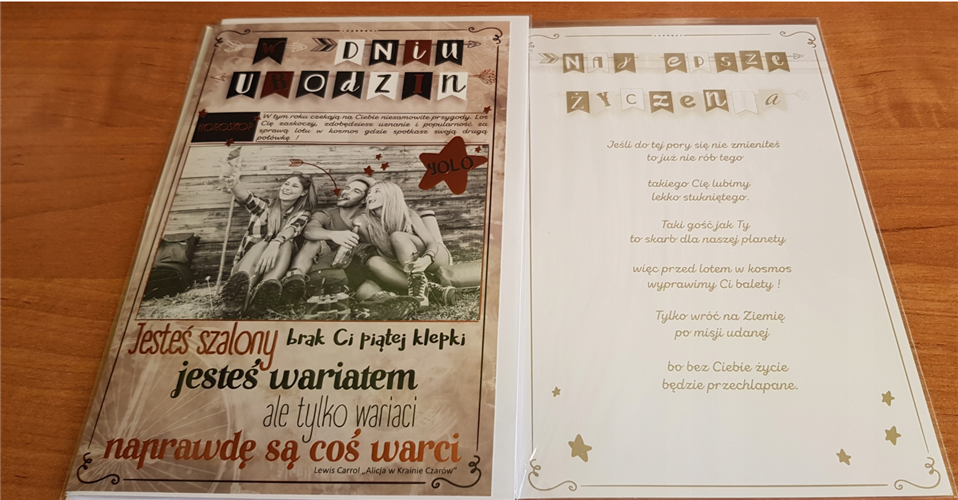 W DNIU
URODZIN
HOROSKOP
W tym roku czekają na Ciebie niezamowite przygody. Los
Cię zaskoczy, zdobędziesz uznanie i popularność za
sprawą lotu w kosmos gdzie spotkasz swoją drugą
połówkę !
YOLO
Jesteś szalony brak Ci piątej klepki
jesteś wariatem
ale tylko wariaci
naprawdę są coś warci
Lewis Carrol „Alicja w Krainie Czarów”
NAJ EPSZE
ŻYCZENIA
Jeśli do tej pory się nie zmieniteś
to już nie rób tego
takiego Cię lubimy
lekko stukniętego.
Taki gość jak Ty
to skarb dla naszej planety
więc przed lotem w kosmos
wyprawimy Ci balety !
Tylko wróć na Ziemię
po misji udanej
bo bez Ciebie życie
będzie przechlapane.